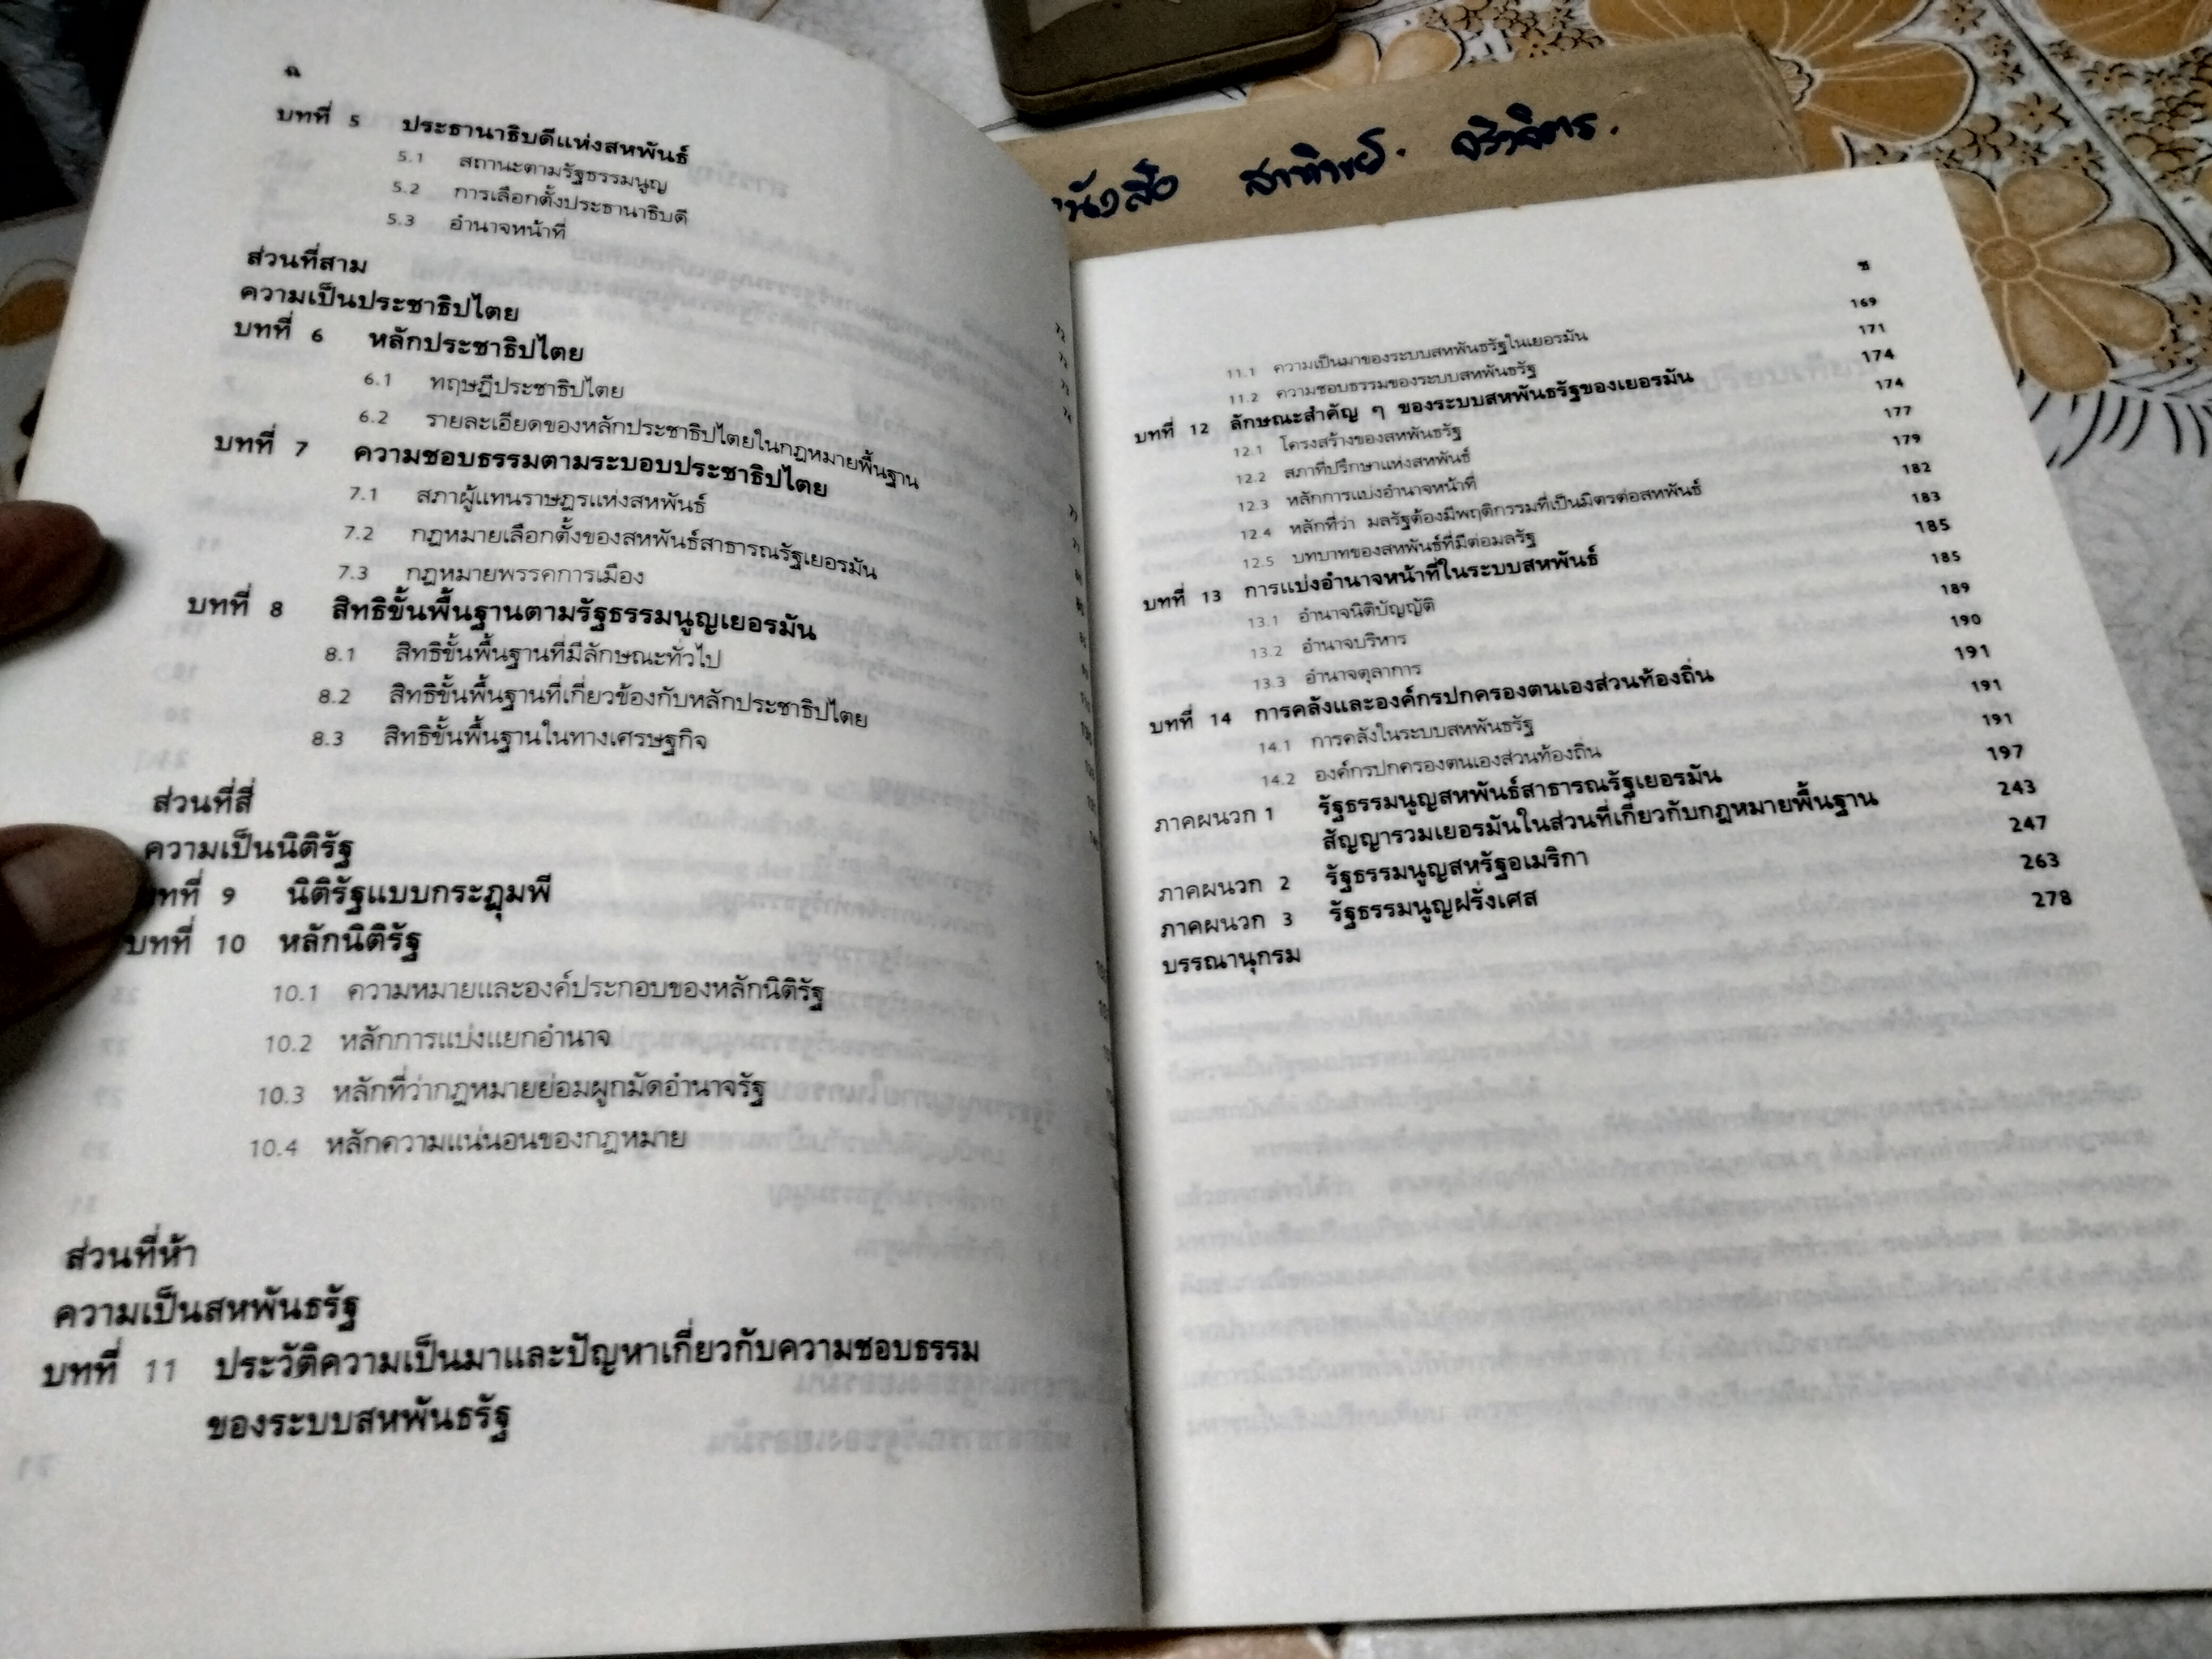 ฉ
บทที่ 5 ประธานาธิบดีแห่งสหพันธ์
5.1 สถานะตามรัฐธรรมนูญ
5.2 การเลือกตั้งประธานาธิบดี
5.3 อำนาจหน้าที่
ส่วนที่สาม
ความเป็นประชาธิปไตย
บทที่ 6 หลักประชาธิปไตย
6.1 ทฤษฎีประชาธิปไตย
6.2 รายละเอียดของหลักประชาธิปไตยในกฎหมายพื้นฐาน
บทที่ 7 ความชอบธรรมตามระบอบประชาธิปไตย
7.1 สภาผู้แทนราษฎรแห่งสหพันธ์
7.2 กฎหมายเลือกตั้งของสหพันธ์สาธารณรัฐเยอรมัน
7.3 กฎหมายพรรคการเมือง
บทที่ 8 สิทธิขั้นพื้นฐานตามรัฐธรรมนูญเยอรมัน
8.1 สิทธิขั้นพื้นฐานที่มีลักษณะทั่วไป
8.2 สิทธิขั้นพื้นฐานที่เกี่ยวข้องกับหลักประชาธิปไตย
8.3 สิทธิขั้นพื้นฐานในทางเศรษฐกิจ
ส่วนที่สี่
ความเป็นนิติรัฐ
บทที่ 9 นิติรัฐแบบกระฎุมพี
บทที่ 10 หลักนิติรัฐ
10.1 ความหมายและองค์ประกอบของหลักนิติรัฐ
10.2 หลักการแบ่งแยกอำนาจ
10.3 หลักที่ว่ากฎหมายย่อมผูกมัดอำนาจรัฐ
10.4 หลักความแน่นอนของกฎหมาย
ส่วนที่ห้า
ความเป็นสหพันธรัฐ
บทที่ 11 ประวัติความเป็นมาและปัญหาเกี่ยวกับความชอบธรรม
ของระบบสหพันธรัฐ
หนังสือ
ช
11.1 ความเป็นมาของระบบสหพันธรัฐในเยอรมัน 169
11.2 ความชอบธรรมของระบบสหพันธรัฐ 171
บทที่ 12 ลักษณะสำคัญ ๆ ของระบบสหพันธรัฐของเยอรมัน 174
12.1 โครงสร้างของสหพันธรัฐ 174
12.2 สภาที่ปรึกษาแห่งสหพันธ์ 177
12.3 หลักการแบ่งอำนาจหน้าที่ 179
12.4 หลักที่ว่า มลรัฐต้องมีพฤติกรรมที่เป็นมิตรต่อสหพันธ์ 182
12.5 บทบาทของสหพันธ์ที่มีต่อมลรัฐ 183
บทที่ 13 การแบ่งอำนาจหน้าที่ในระบบสหพันธ์ 185
13.1 อำนาจนิติบัญญัติ 185
13.2 อำนาจบริหาร 189
13.3 อำนาจตุลาการ 190
บทที่ 14 การคลังและองค์กรปกครองตนเองส่วนท้องถิ่น 191
14.1 การคลังในระบบสหพันธรัฐ 191
14.2 องค์กรปกครองตนเองส่วนท้องถิ่น 191
ภาคผนวก 1 รัฐธรรมนูญสหพันธ์สาธารณรัฐเยอรมัน 197
สัญญารวมเยอรมันในส่วนที่เกี่ยวกับกฎหมายพื้นฐาน 243
ภาคผนวก 2 รัฐธรรมนูญสหรัฐอเมริกา 247
ภาคผนวก 3 รัฐธรรมนูญฝรั่งเศส 263
บรรณานุกรม 278